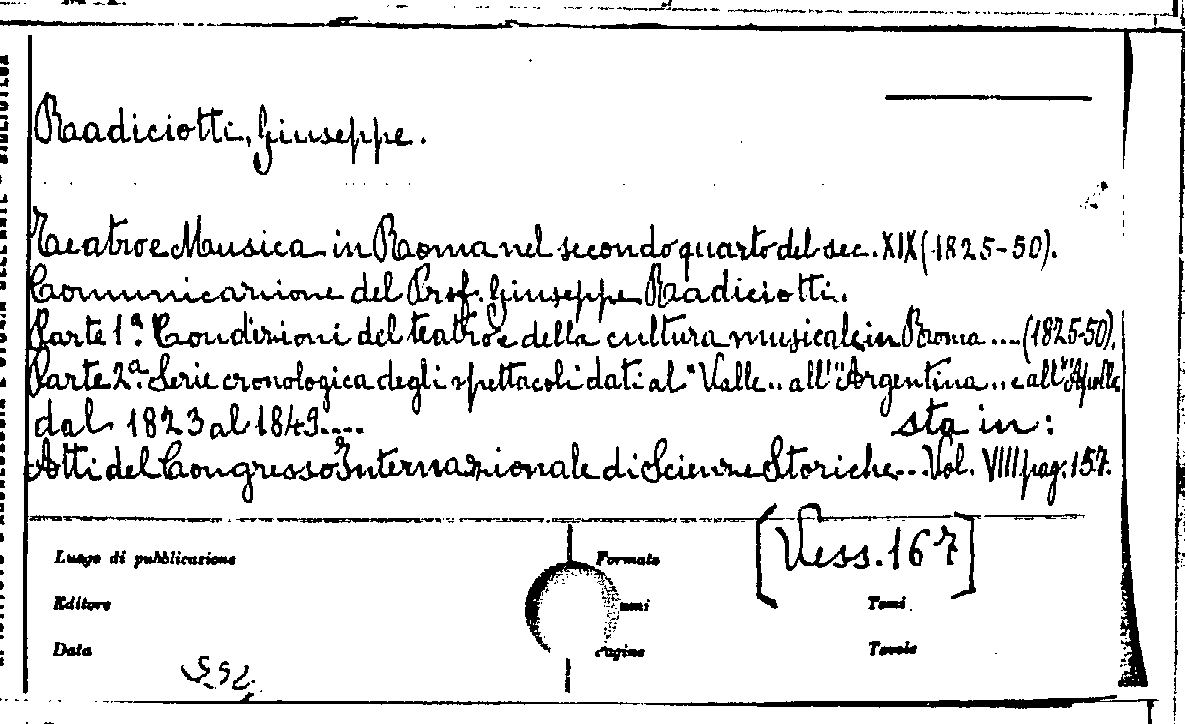 Raadiciotti, Giuseppe.
Teatro e Musica in Roma nel secondo quarto del sec. XIX (1825-50).
Comunicazione del Prof. Giuseppe Raadiciotti.
Parte 1ª. Condizioni del teatro e della cultura musicale in Roma .... (1825-50).
Parte 2ª. Serie cronologica degli spettacoli dati al "Valle.. all'"Argentina.. e all'"Apollo
dal 1823 al 1849.... sta in:
Atti del Congresso Internazionale di Scienze Storiche... Vol. VIII pag. 157.
[Vess. 167]
Luogo di pubblicazione Formato
Editore Tomi
Data Pagine Tavole